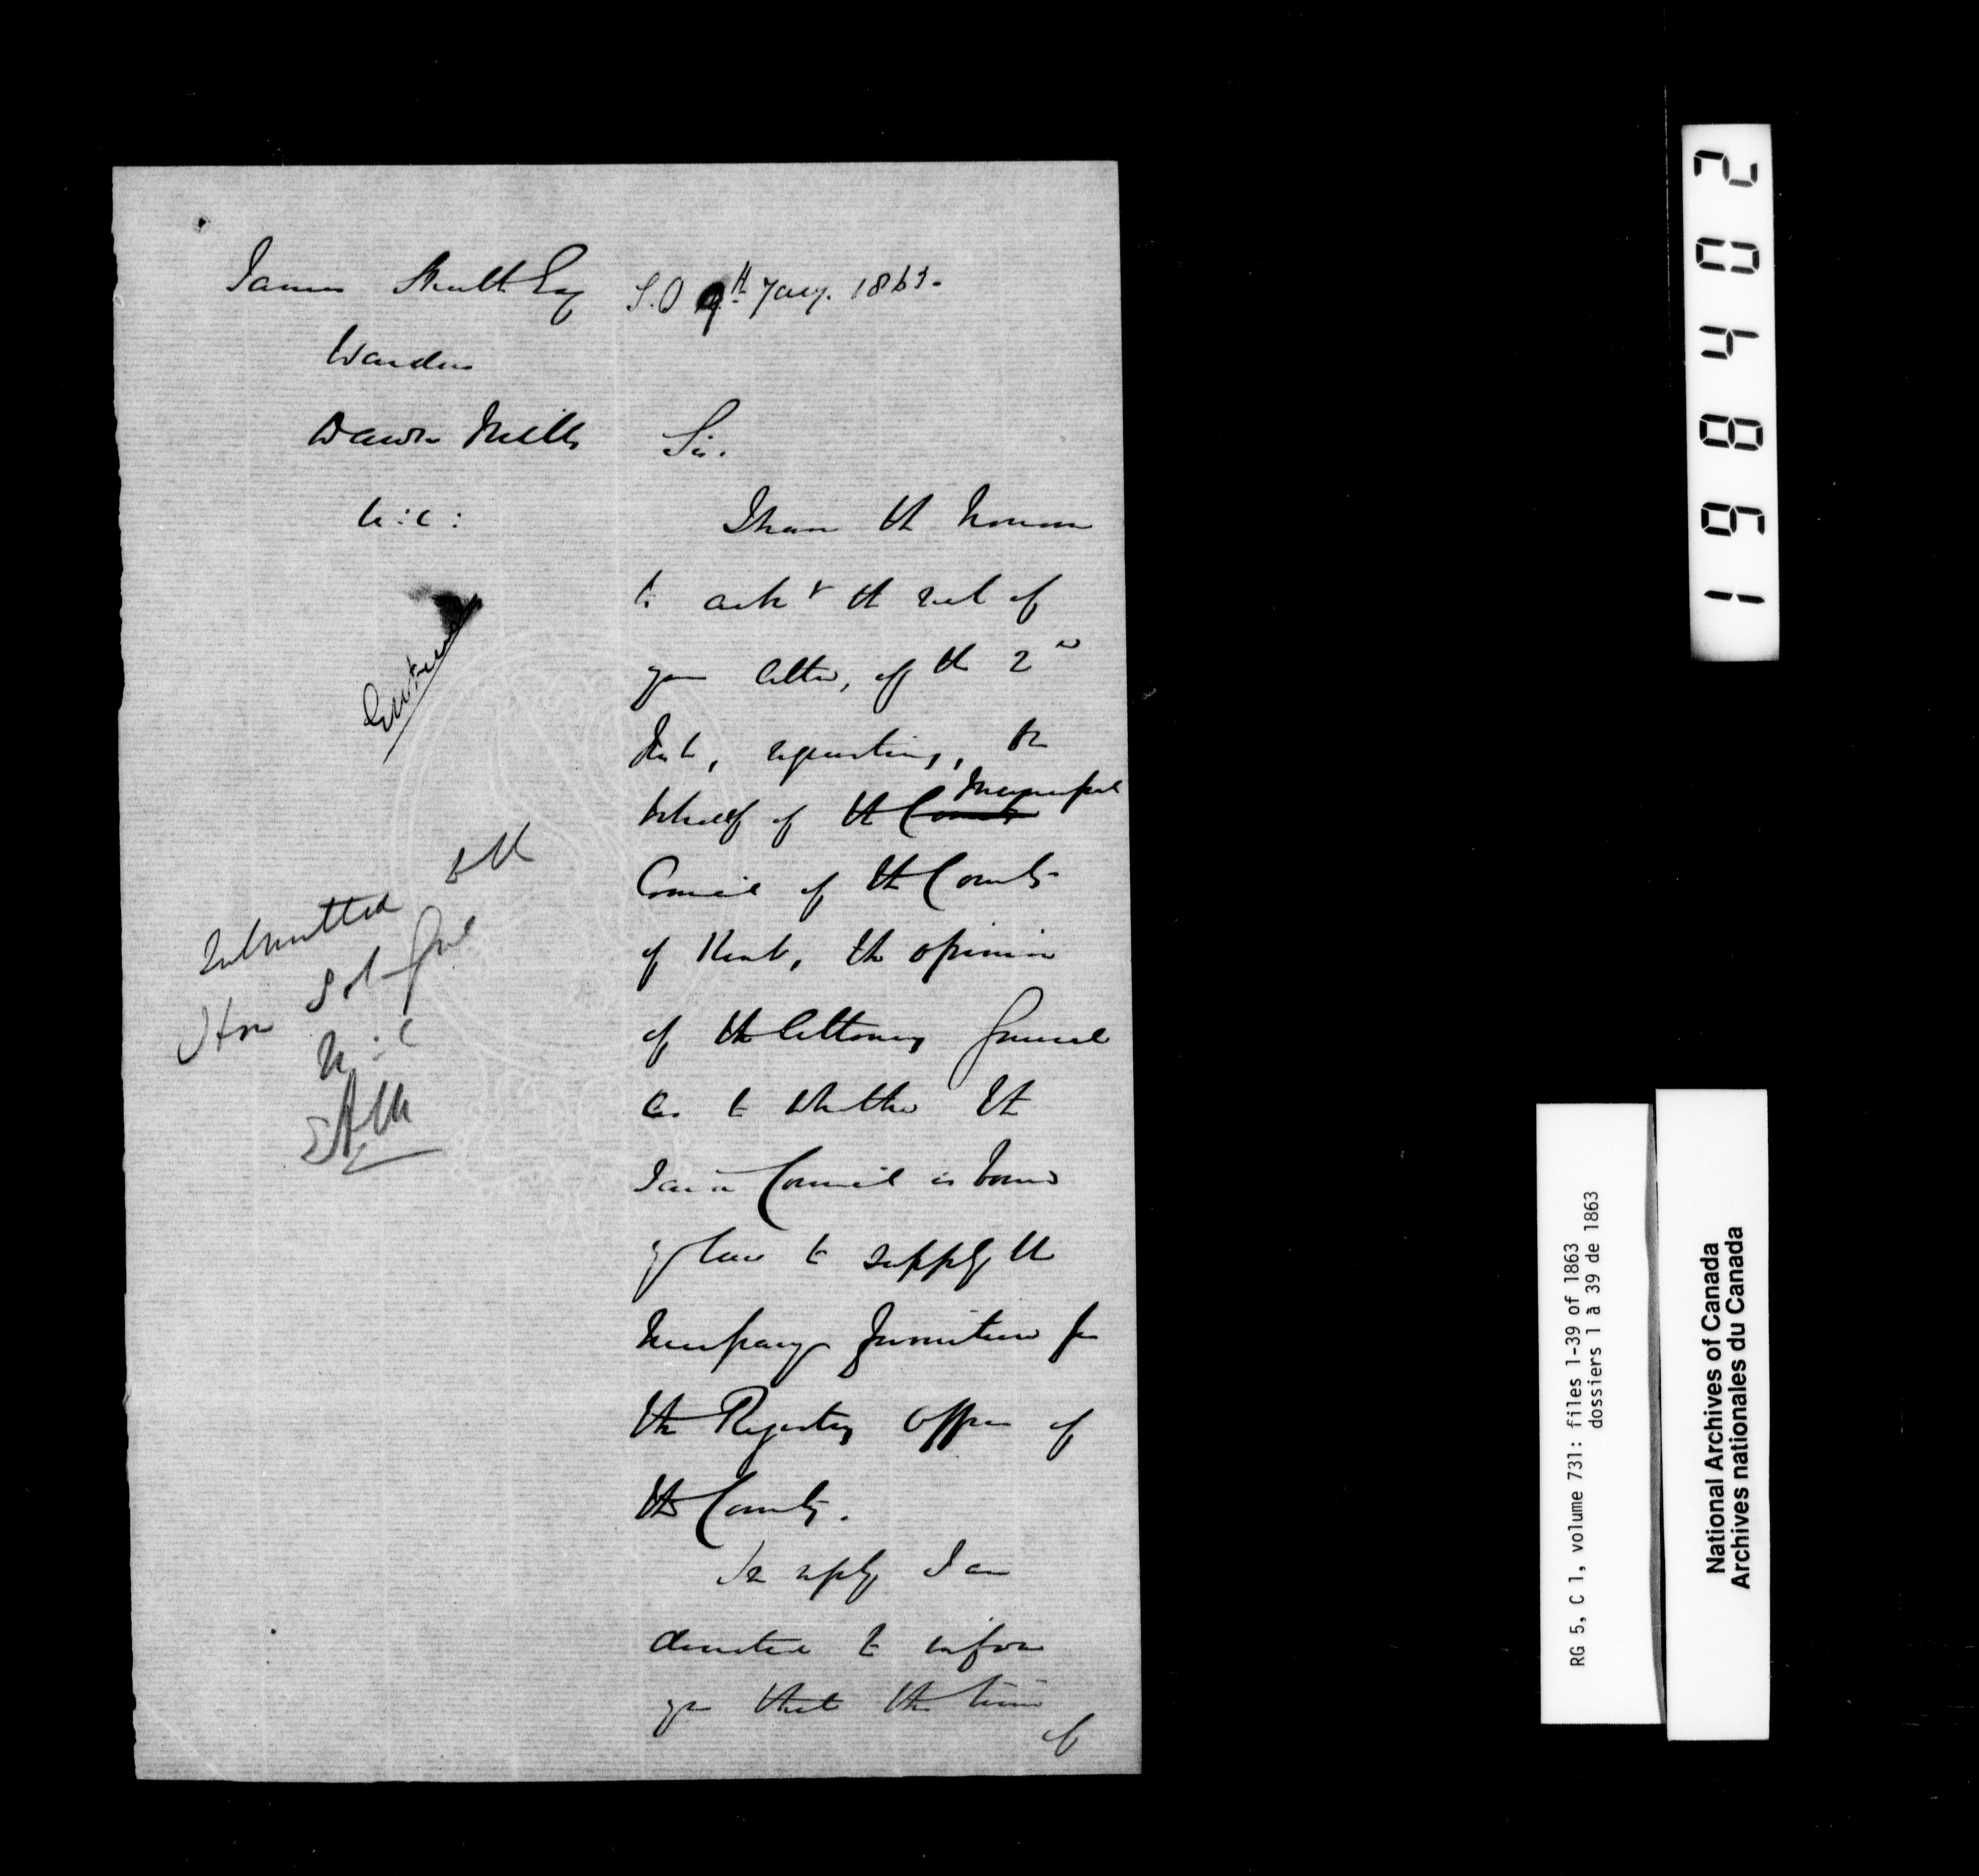 James Smith Esq
Warden
Dawn Mills
U:C:
S.O 9th Jany. 1863.
Sir.
I have the honour
to ackr the rect of
your letter, of the 2nd
Inst, requesting, on
behalf of the County Municipal
Council of the County
of Kent, the opinion
of the Attorney General
as to whether the
said Council is bound
by law to supply the
necessary furniture for
the Registry Office of
the County.
In reply I am
directed to inform
you that the time
of
Entered
Submitted to the
Hon Sol Genl
U:C
EAM
204861
RG 5, C 1, volume 731: files 1-39 of 1863
dossiers 1 à 39 de 1863
National Archives of Canada
Archives nationales du Canada